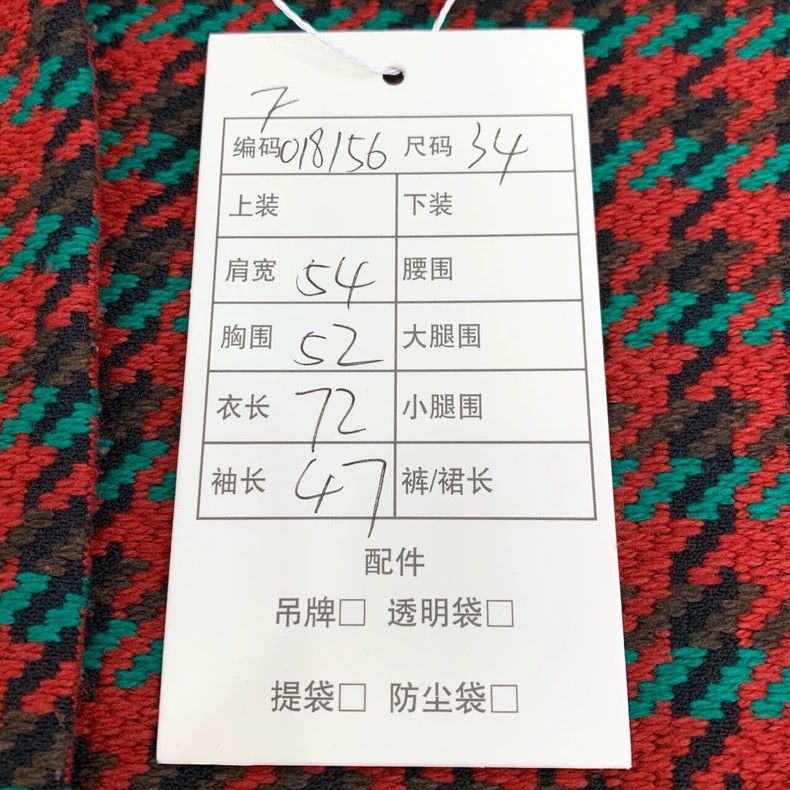 编码018156 尺码 34
上装 下装
肩宽 54 腰围
胸围 52 大腿围
衣长 72 小腿围
袖长 47 裤/裙长
配件
吊牌□ 透明袋□
提袋□ 防尘袋□